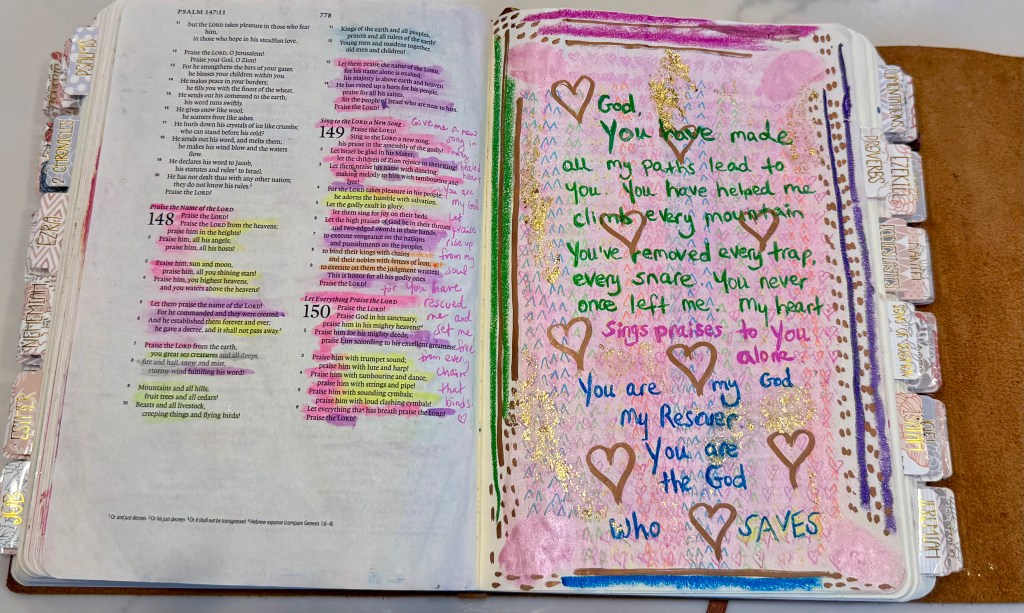 PSALM 147:11
778
11 but the LORD takes pleasure in those who fear
him,
in those who hope in his steadfast love.
12 Praise the LORD, O Jerusalem!
Praise your God, O Zion!
13 For he strengthens the bars of your gates;
he blesses your children within you.
14 He makes peace in your borders;
he fills you with the finest of the wheat.
15 He sends out his command to the earth;
his word runs swiftly.
16 He gives snow like wool;
he scatters frost like ashes.
17 He hurls down his crystals of ice like crumbs;
who can stand before his cold?
18 He sends out his word, and melts them;
he makes his wind blow and the waters
flow.
19 He declares his word to Jacob,
his statutes and rules to Israel.
20 He has not dealt thus with any other nation;
they do not know his rules.
Praise the LORD!
Praise the Name of the LORD
148 Praise the LORD!
Praise the LORD from the heavens;
praise him in the heights!
2 Praise him, all his angels;
praise him, all his hosts!
3 Praise him, sun and moon,
praise him, all you shining stars!
4 Praise him, you highest heavens,
and you waters above the heavens!
5 Let them praise the name of the LORD!
For he commanded and they were created.
6 And he established them forever and ever;
he gave a decree, and it shall not pass away.
7 Praise the LORD from the earth,
you great sea creatures and all deeps,
8 fire and hail, snow and mist,
stormy wind fulfilling his word!
9 Mountains and all hills,
fruit trees and all cedars!
10 Beasts and all livestock,
creeping things and flying birds!
11 Kings of the earth and all peoples,
princes and all rulers of the earth!
12 Young men and maidens together,
old men and children!
13 Let them praise the name of the LORD,
for his name alone is exalted;
his majesty is above earth and heaven.
14 He has raised up a horn for his people,
praise for all his saints,
for the people of Israel who are near to him.
Praise the LORD!
Sing to the LORD a New Song
149 Praise the LORD!
Sing to the LORD a new song,
his praise in the assembly of the godly!
2 Let Israel be glad in his Maker;
let the children of Zion rejoice in their King!
3 Let them praise his name with dancing,
making melody to him with tambourine and
lyre!
4 For the LORD takes pleasure in his people;
he adorns the humble with salvation.
5 Let the godly exult in glory;
let them sing for joy on their beds.
6 Let the high praises of God be in their throats
and two-edged swords in their hands,
7 to execute vengeance on the nations
and punishments on the peoples,
8 to bind their kings with chains
and their nobles with fetters of iron,
9 to execute on them the judgment written!
This is honor for all his godly ones.
Praise the LORD!
Let Everything Praise the LORD
150 Praise the LORD!
Praise God in his sanctuary;
praise him in his mighty heavens!
2 Praise him for his mighty deeds;
praise him according to his excellent greatness!
3 Praise him with trumpet sound;
praise him with lute and harp!
4 Praise him with tambourine and dance;
praise him with strings and pipe!
5 Praise him with sounding cymbals;
praise him with loud clashing cymbals!
6 Let everything that has breath praise the LORD!
Praise the LORD!
Give me a new
song in
my
heart
You are
my God
Let
praise
rise up
from my
soul
for You have
rescued
me and
set me
free
from every
chain
that
binds.
God,
You have made
all my paths lead to
you. You have helped me
climb every mountain
You've removed every trap,
every snare. You never
once left me. My heart
sings praises to You
alone
You are my God
My Rescuer
You are
the God
who SAVES
PSALMS
CHRONICLES
EZRA
NEHEMIAH
ESTHER
JOB
PROVERBS